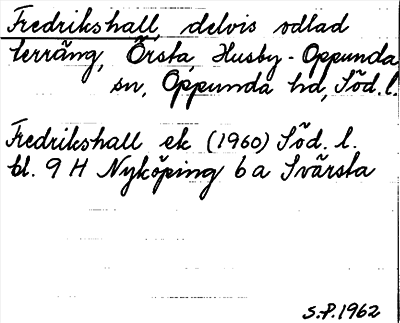 Fredrikshall, delvis odlad
terräng, Örsta, Husby-Oppunda
sn, Oppunda hd, Söd. l.
Fredrikshall ek (1960) Söd. l.
bl. 9 H Nyköping 6 a Svärsta
S.P. 1962